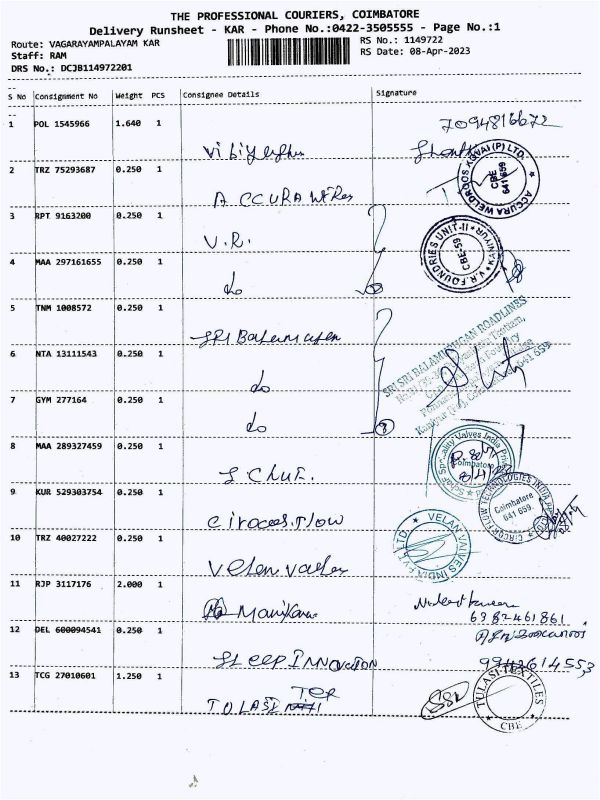 THE PROFESSIONAL COURIERS, COIMBATORE
Delivery Runsheet - KAR - Phone No.:0422-3505555 - Page No.:1
Route: VAGARAYAMPALAYAM KAR
RS No.: 1149722
Staff: RAM
RS Date: 08-Apr-2023
DRS No.: DCJB114972201
S No Consignment No Weight PCS Consignee Details Signature
1 POL 1545966 1.640 1 7094816672
2 TRZ 75293687 0.250 1 ACCURA WELDRODS KOVAI (P) LTD. CBE 641 659
ACCURA Wires
3 RPT 9163200 0.250 1
V.R. V.R.FOUNDRIES UNIT-II KANIYUR CBE-59
4 MAA 297161655 0.250 1
do
5 TNM 1008572 0.250 1
SRI Balamurugan SRI SRI BALAMURUGAN ROADLINES
6 NTA 13111543 0.250 1
do
7 GYM 277164 0.250 1
do 8
8 MAA 289327459 0.250 1 Coimbatore
9 KUR 529303754 0.250 1 CIRCOR FLOW TECHNOLOGIES INDIA Coimbatore 641 659.
Circor Flow
10 TRZ 40027222 0.250 1 VELAN VALVES INDIA PVT. LTD.
Velan Valves
11 RJP 3117176 2.000 1
6382461861
12 DEL 600094541 0.250 1
SLEEP INNOVATION
13 TCG 27010601 1.250 1 TULASI TEXTILES CBE
TULASI TEX